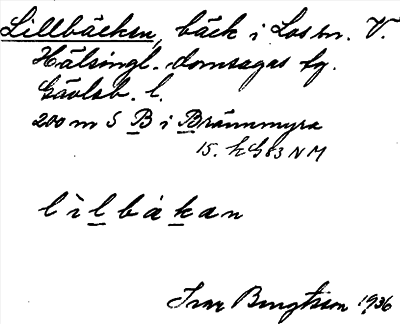 Lillbäcken, bäck i Los sn. V.
Hälsingl. domsagas tg.
Gävleb. l.
200 m S B i Brännmyra
15. h G 83 N M
lìlbákan
Ivar Bengtsson 1936